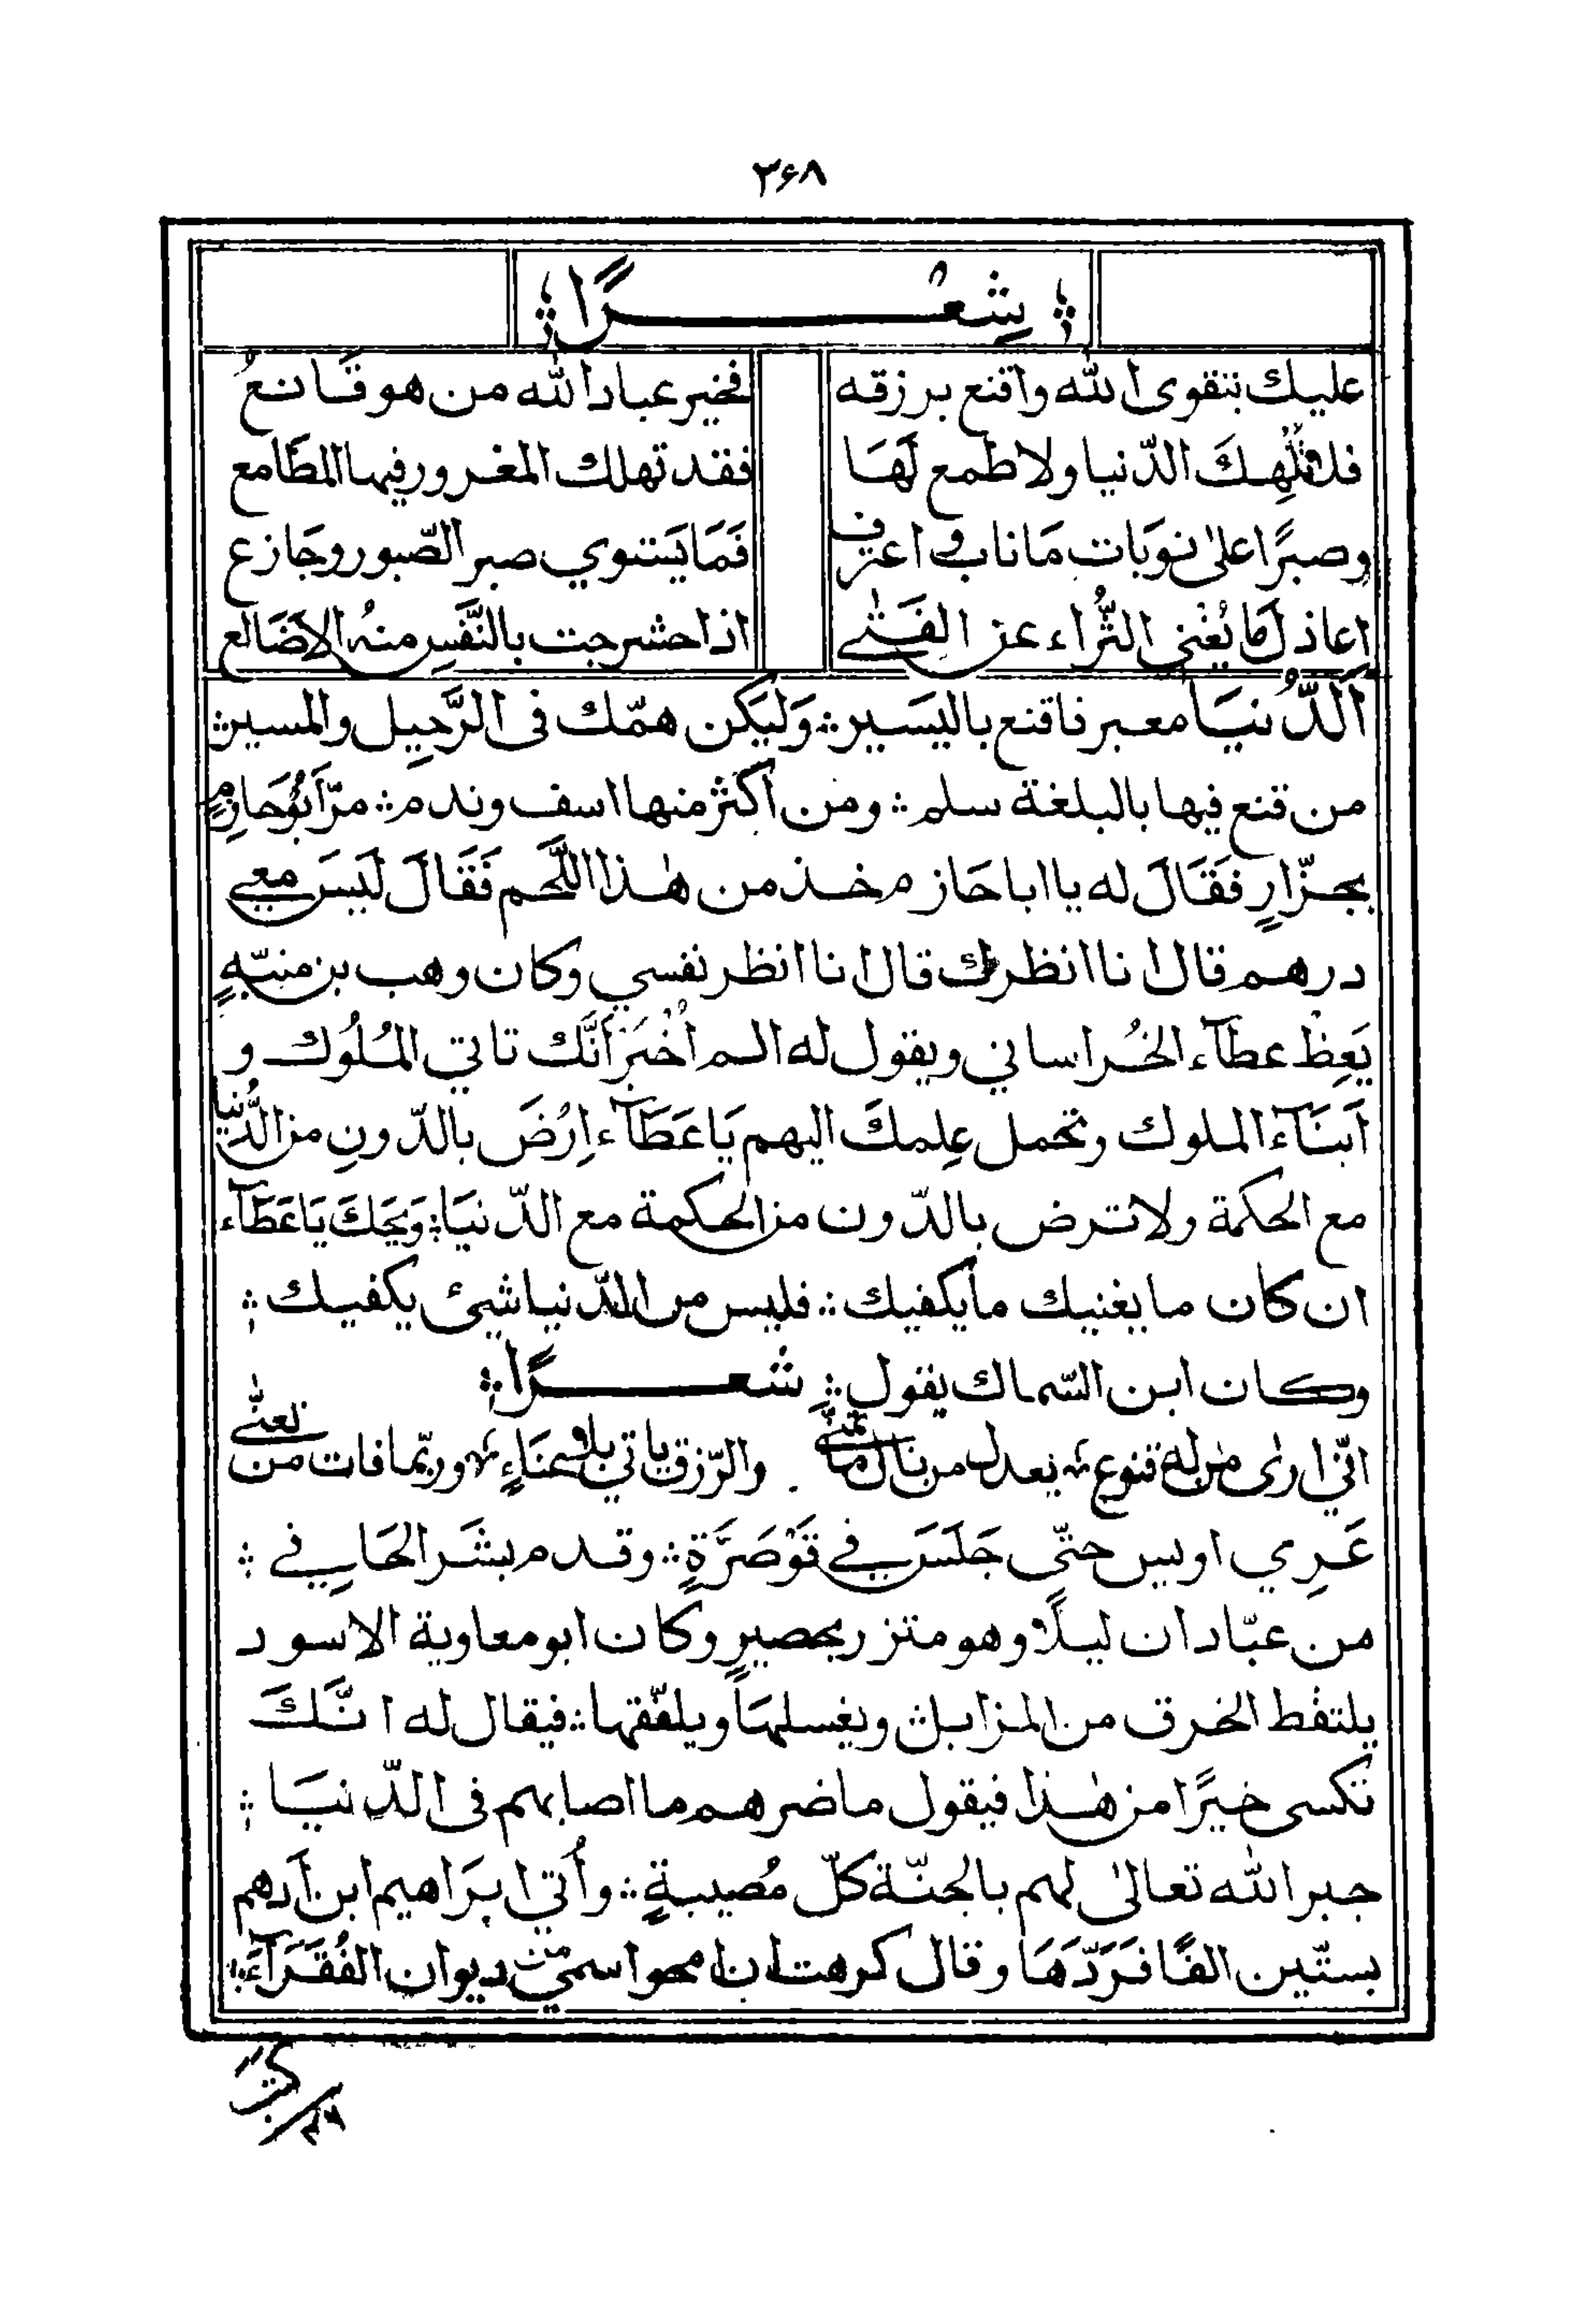 ۳۶۸
شِعْرًا
عليك بتقوى الله واقنع برزقه فخير عباد الله من هو قَانعُ
فلا تُلْهِكَ الدّنيا ولا طمع لَهَا فقد تهلك المغرور فيها المطَامع
وصبرًا على نوبَات مَا ناب واعترف فَمَا يَستوي صبر الصّبور وجَازع
اعاذل مَا يُغْنِي الثُّراء عن الفَتٰى اذا حشرجت بالنَّفسِ منهُ الاضَالع
اَلدُّنيَا معبر فاقنع باليسَير؞ وَليَكن همّك فى الرَّحِيل والمسير؞
من قنع فيها بالبلغة سلم؞ ومن اكثر منها اسف وندم؞ مرّ اَبُو حَازِمٍ
بجزّارٍ فَقَالَ له يا ابا حَازم خذ من هٰذا اللَّحَم فَقَالَ لَيسَ معي
درهم قال انا انظرك قال انا انظر نفسي وكان وهب بن منبّهٍ
يَعِظ عطآء الخُراساني ويقول له الم اُخْبَرْ اَنَّك تاتي المُلُوك و
اَبنَآء الملوك وتحمل عِلمكَ اليهم يَا عَطَآء اِرْضَ بالدّونِ من الدُّنيا
مع الحكمة ولا ترض بالدّون من الحكمة مع الدّنيَا؞ وَيحَكَ يَا عَطَآء
ان كان ما يغنيك ما يكفيك؞ فليس من الدّنيا شيئ يكفيك؞
وكان ابن السّماك يقول؞ شعرًا؞
انّي ارٰى من له قنوع؞ يعدل من نال ما تمنّٰى والرّزق ياتي بلا عنَاءٍ؞ وربّما فات من تعنّٰى
عَرِي اويس حتّى جَلَسَ في قَوْصَرَّةٍ؞ وقدم بشَر الحَافِي في؞
من عبّادان ليلًا وهو متزر بحصيرٍ وكان ابو معاوية الاسود
يلتقط الخرق من المزابل؞ ويغسلهَا ويلفّقها؞ فيقال له انَّكَ
تكسى خيرًا من هٰذا فيقول ما ضرهم ما اصابهم فى الدّنيَا؞
جبر الله تعالىٰ لهم بالجنّة كلّ مُصيبةٍ؞ واُتي ابرَاهيم ابن اَدهم
بستّين الفًا فَرَدّهَا وقال كرهت ان امحو اسمي من ديوان الفُقَرَآءَ؞